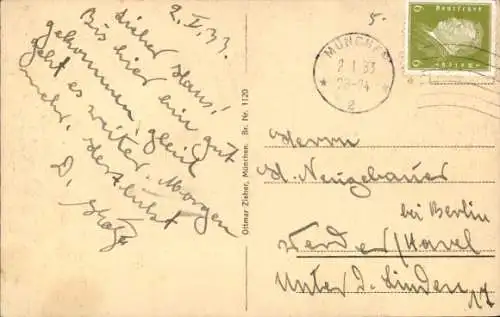 2. I. 33.
Lieber Hans!
Bis hier hin gut
gekommen, gleich
geht es weiter. Morgen
mehr. Herzlichst
D.
5.
MÜNCHEN
2.1.33
23-24
* 2 *
Deutsches
Reich
6 6
Ottmar Zieher, München. Br. Nr. 1120
Herrn
H. Neugebauer
bei Berlin
Werder/Havel
Unter d. Linden